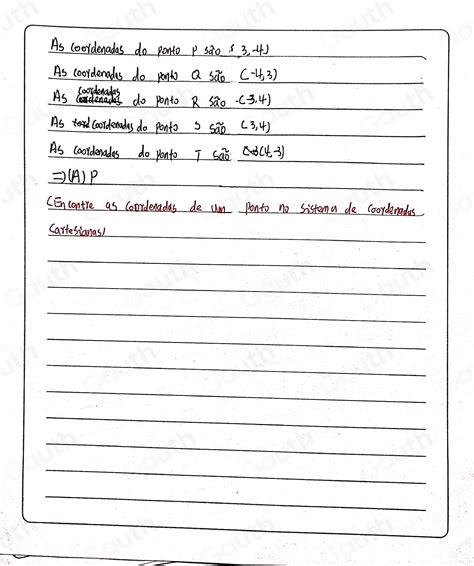 As coordenadas do ponto P são ( 3, -4)
As coordenadas do ponto Q são (-4, 3)
coordenadas
As do ponto R são (-3, 4)
As coordenadas do ponto S são (3, 4)
As coordenadas do ponto T são (4, -3)
⇒ (A) P
(Encontre as coordenadas de um ponto no sistema de coordenadas
Cartesianas)
Gauth